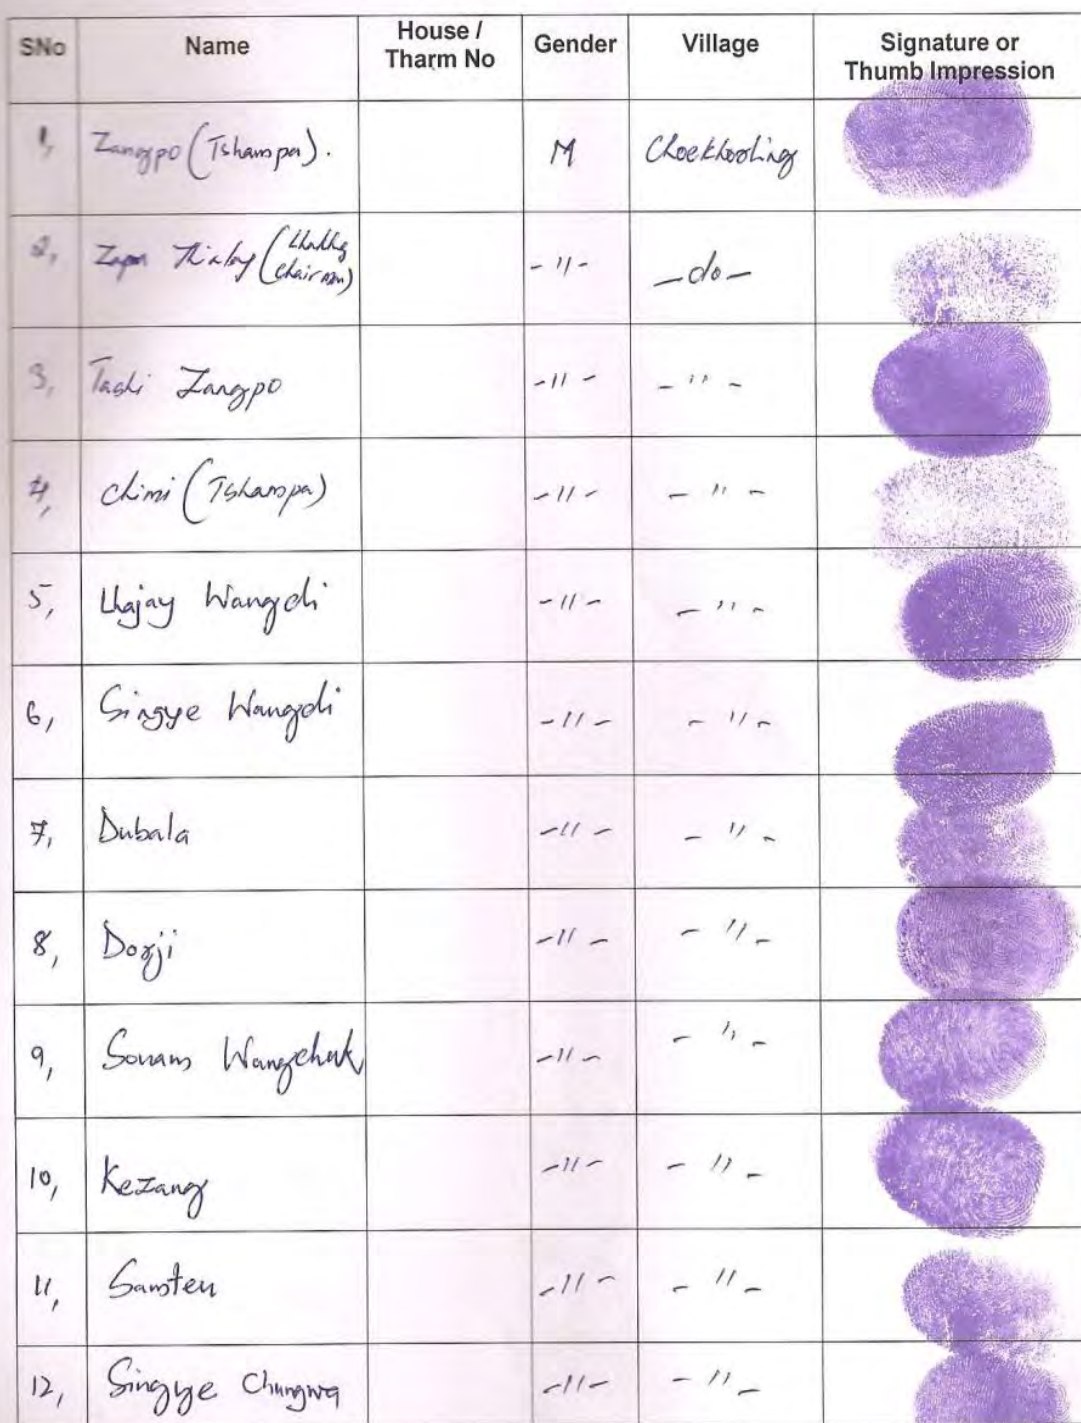 SNo Name House / Tharm No Gender Village Signature or Thumb Impression
1, Zangpo (Tshampa). M Choekhorling
2, Thinley (Lhakhg chairman) -"- -do-
3, Tashi Zangpo -"- -"-
4, chimi (Tshampa) -"- -"-
5, Lhajay Wangdi -"- -"-
6, Singye Wangdi -"- -"-
7, Dubala -"- -"-
8, Dorji -"- -"-
9, Sonam Wangchuk -"- -"-
10, Kezang -"- -"-
11, Samten -"- -"-
12, Singye Chungwa -"- -"-